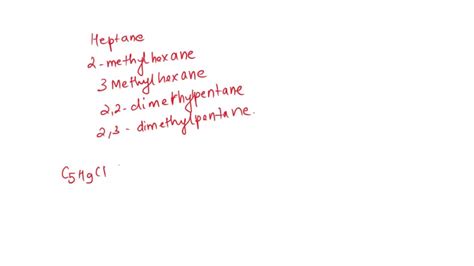 Heptane
2-methylhexane
3 Methylhexane
2,2-dimethylpentane
2,3-dimethylpentane.
C₅H₉Cl